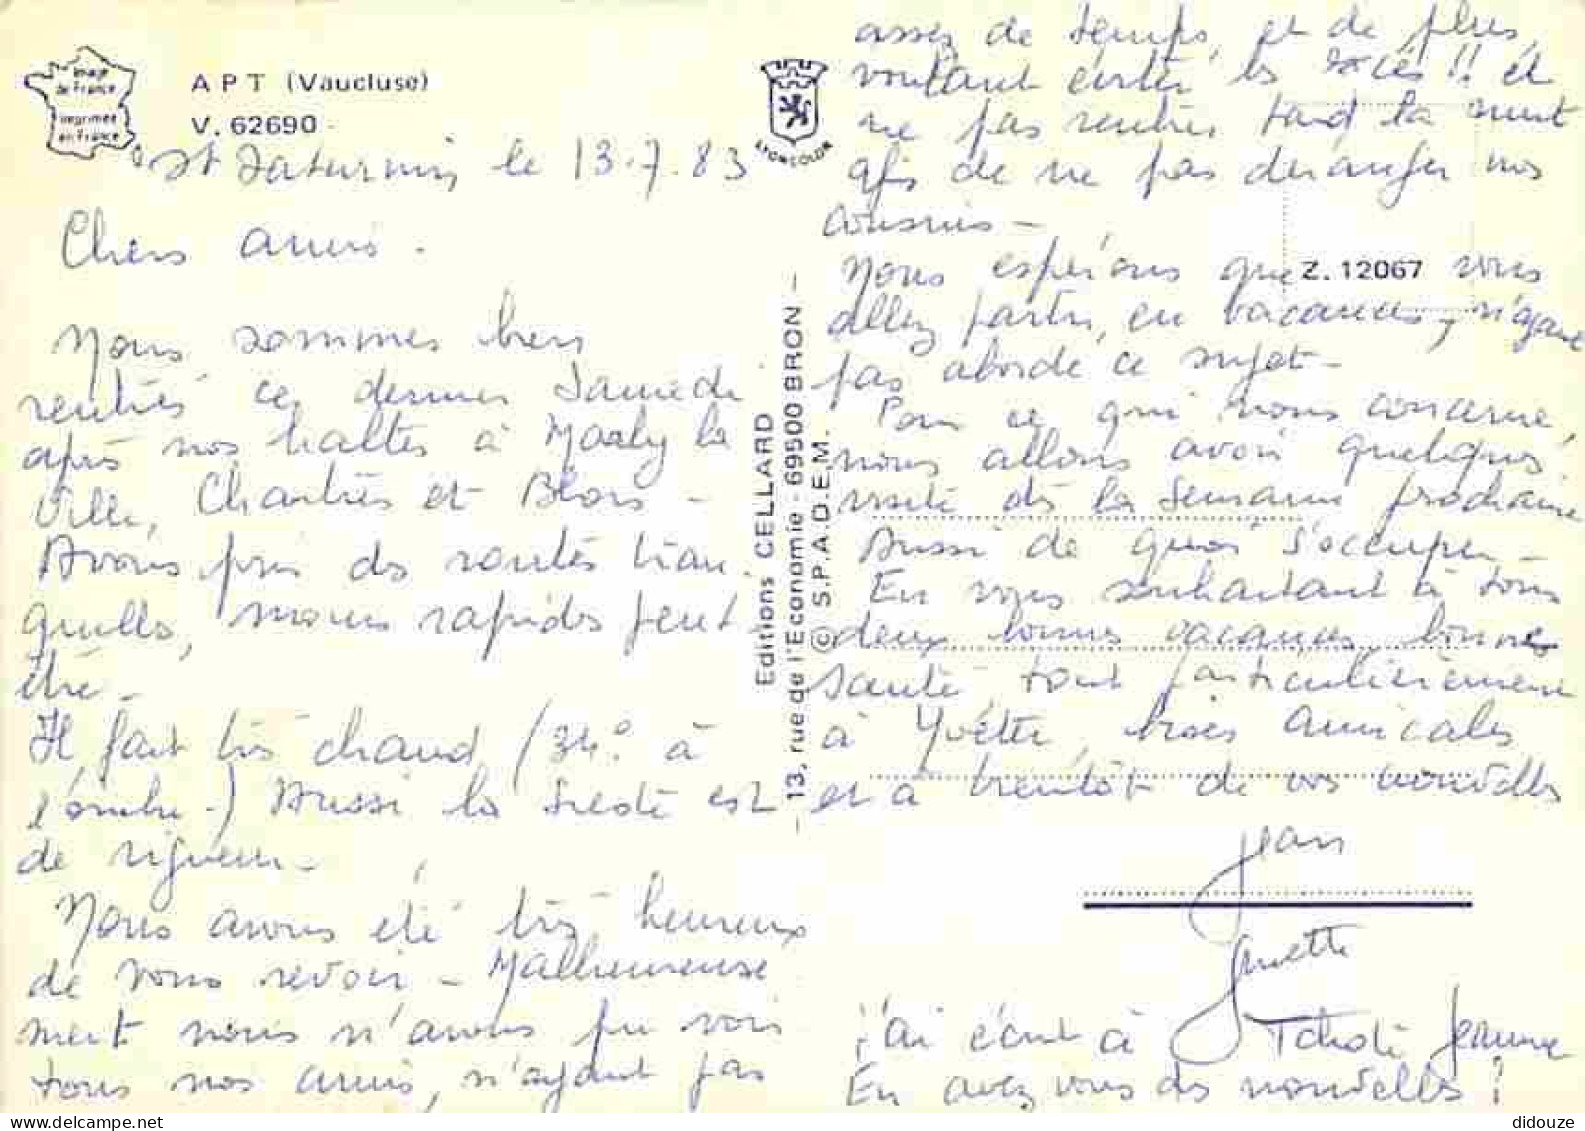 Image
de France
imprimée
en France
APT (Vaucluse)
V. 62690
St Saturnin, le 13.7.83
Chers amis.
Nous sommes bien
rentrés ce dernier Samedi
après nos haltes à Marly la
Ville, Chartres et Blois -
Avons pris des routes tran-
quilles, moins rapides peut
être -
Il fait très chaud (34° à
l'ombre -) Aussi la sieste est
de rigueur -
Nous avons été très heureux
de vous revoir - Malheureuse
ment nous n'avons pu voir
tous nos amis, n'ayant pas
Editions CELLARD
13, rue de l'Economie - 69500 BRON -
© S.P.A.D.E.M.
LYONCOLOR
assez de temps, et de plus,
voulant éviter les !! et
ne pas rentrer tard la nuit
afin de ne pas déranger nos
cousins -
Nous espérons que vous
Z. 12067
allez partir en vacances, n'ayant
pas abordé ce sujet -
Pour ce qui nous concerne,
nous allons avoir quelques
visites dès la Semaine prochaine
Aussi de quoi s'occuper -
En vous souhaitant à tous
deux bonnes vacances, bonne
santé, tout particulièrement
à Yvette, bises amicales
et à bientôt de vos nouvelles
Jean
Ginette
J'ai écrit à Tchoté Jeanne
En avez vous des nouvelles ?
didouze